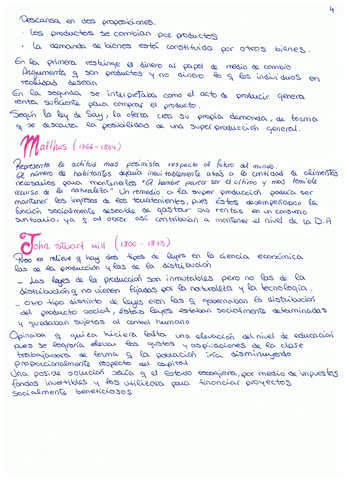 4
Descansa, en dos proposiciones.
· Los productos se cambian por productos
· La demanda de bienes está constituida por otros bienes.
En la primera restringe el dinero al papel de medio de cambio
Argumenta q son productos y no dinero lo q los individuos en
realidad desean
En la segunda se interpretaba como el acto de producir genera
renta suficiente para comprar el producto.
Según la ley de Say, la oferta crea su propia demanda, de forma
q se descarta la posibilidad de una superproducción general.
Malthus (1766-1834)
Representa la actitud mas pesimista respecto al futuro del mundo.
el número de habitantes dejaría inevitablemente atrás a la cantidad de alimentos
necesarios para mantenerlos "El hombre parece ser el último y mas temible
recurso de la naturaleza" Un remedio a la super producción podría ser
mantener los ingresos de los terratenientes, pues éstos desempeñaban la
función socialmente deseable de gastar sus rentas en un consumo
suntuario, ya q al hacer así contribuían a mantener el nivel de la D.A
John Stuart Mill (1806-1873)
Puso en relieve q hay dos tipos de leyes en la ciencia económica
las de la producción y las de la distribución
- Las leyes de la producción son inmutables pero no las de la
distribución q no vienen fijadas por la naturaleza y la tecnología.
- otro tipo distinto de leyes eran las q gobernaban la distribución
del producto social, éstas leyes estaban socialmente determinadas
y quedaban sujetas al control humano
Opinaba q quizá hiciera falta una elevación del nivel de educación
pues se lograría elevar los gustos y aspiraciones de la clase
trabajadora de forma q la población iría disminuyendo
proporcionalmente respecto del capital
Una posible solución sería q el Estado recogiera, por medio de impuestos
fondos invertibles y los utilizara para financiar proyectos
socialmente beneficiosos